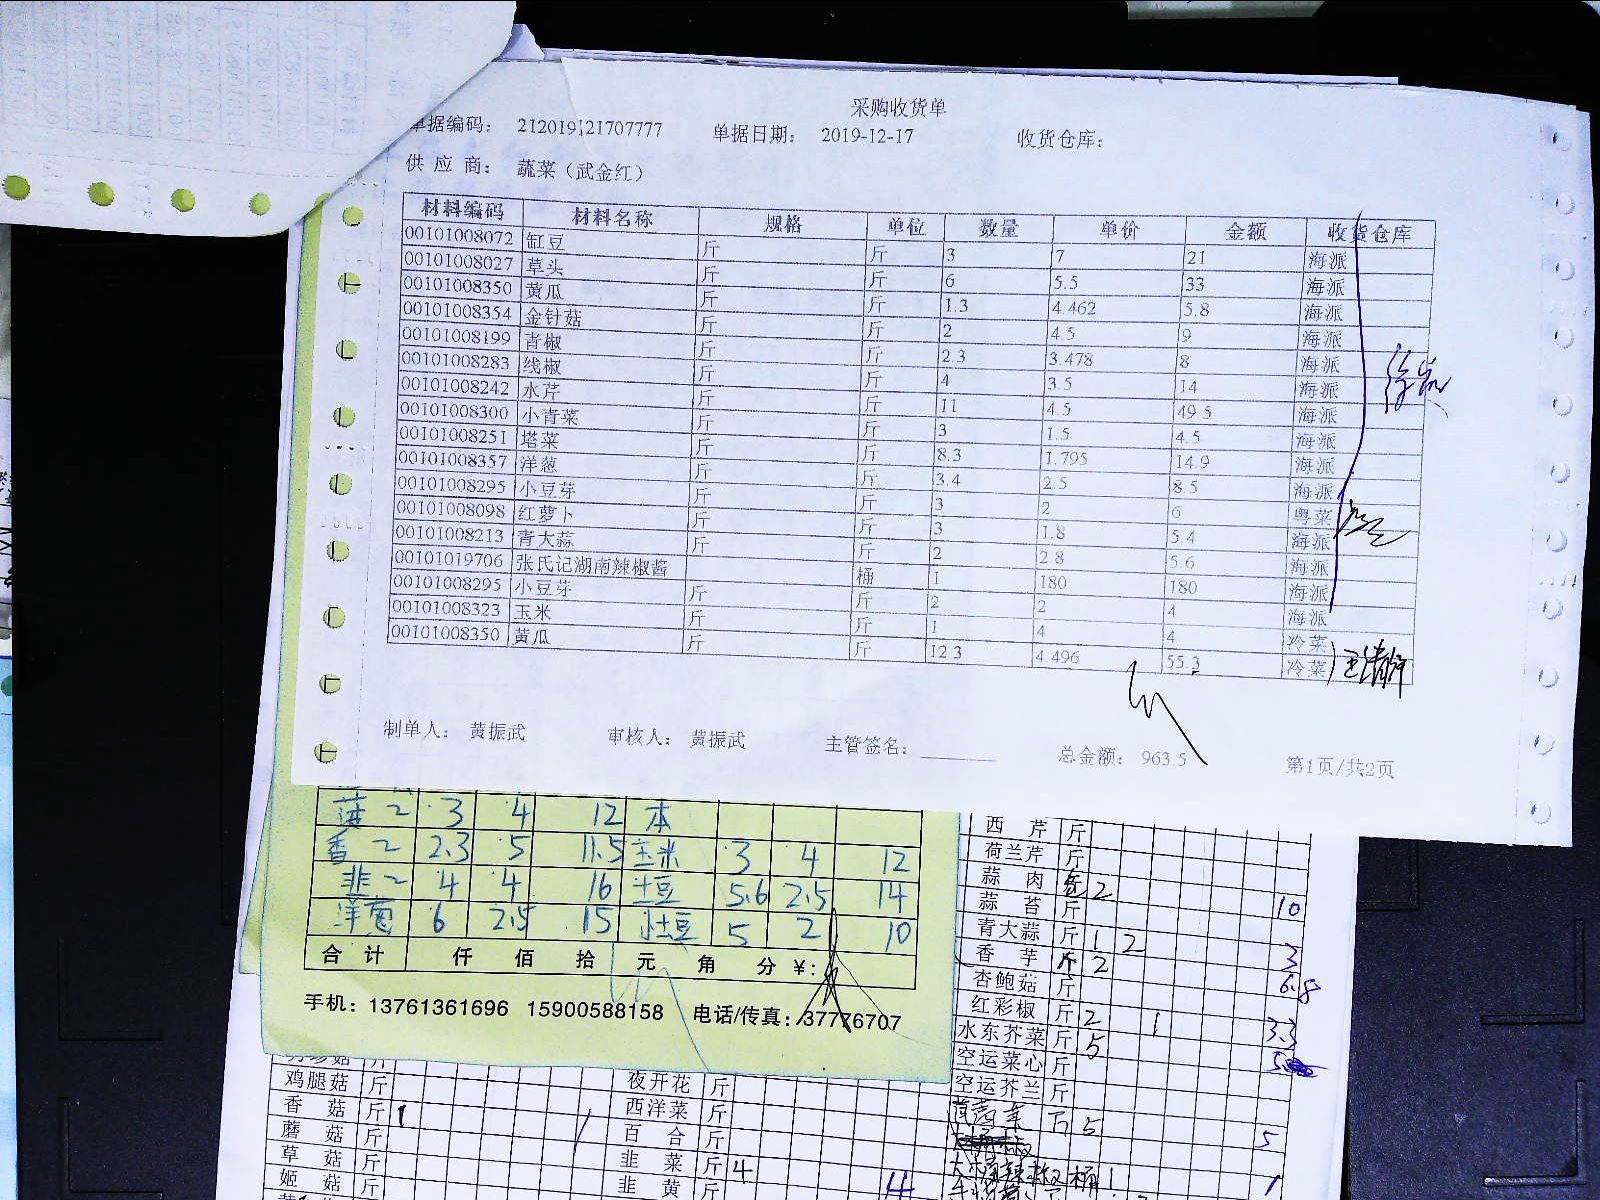 采购收货单
单据编码： 212019121707777 单据日期： 2019-12-17 收货仓库：
供 应 商： 蔬菜（武金红）
材料编码 材料名称 规格 单位 数量 单价 金额 收货仓库
00101008072 缸豆 斤 斤 3 7 21 海派
00101008027 草头 斤 斤 6 5.5 33 海派
00101008350 黄瓜 斤 斤 1.3 4.462 5.8 海派
00101008354 金针菇 斤 斤 2 4.5 9 海派
00101008199 青椒 斤 斤 2.3 3.478 8 海派
00101008283 线椒 斤 斤 4 3.5 14 海派
00101008242 水芹 斤 斤 11 4.5 49.5 海派
00101008300 小青菜 斤 斤 3 1.5 4.5 海派
00101008251 塔菜 斤 斤 8.3 1.795 14.9 海派
00101008357 洋葱 斤 斤 3.4 2.5 8.5 海派
00101008295 小豆芽 斤 斤 3 2 6 粤菜
00101008098 红萝卜 斤 斤 3 1.8 5.4 海派
00101008213 青大蒜 斤 斤 2 2.8 5.6 海派
00101019706 张氏记湖南辣椒酱 桶 1 180 180 海派
00101008295 小豆芽 斤 斤 2 2 4 海派
00101008323 玉米 斤 斤 1 4 4 冷菜
00101008350 黄瓜 斤 斤 12.3 4.496 55.3 冷菜
制单人： 黄振武 审核人： 黄振武 主管签名： 总金额： 963.5 第1页/共2页
3 4 12 本
香 2.3 5 11.5 玉米 3 4 12
韭 4 4 16 土豆 5.6 2.5 14
洋葱 6 2.5 15 5 2 10
合 计 仟 佰 拾 元 角 分 ¥：
手机：13761361696 15900588158 电话/传真：37776707
西 芹 斤
荷兰芹 斤
蒜 肉 2
蒜 苔 斤 10
青大蒜 斤 1 2
香 芋 斤 2 3
杏鲍菇 斤 6.8
红彩椒 斤 2 1
水东芥菜 斤 5 3.3
空运菜心 斤
空运芥兰 斤
5 5
桶 1 1
鸡腿菇 斤 夜开花 斤
香 菇 斤 1 西洋菜 斤
蘑 菇 斤 百 合 斤
草 菇 斤 韭 菜 斤 4
姬 菇 斤 韭 黄 斤 4